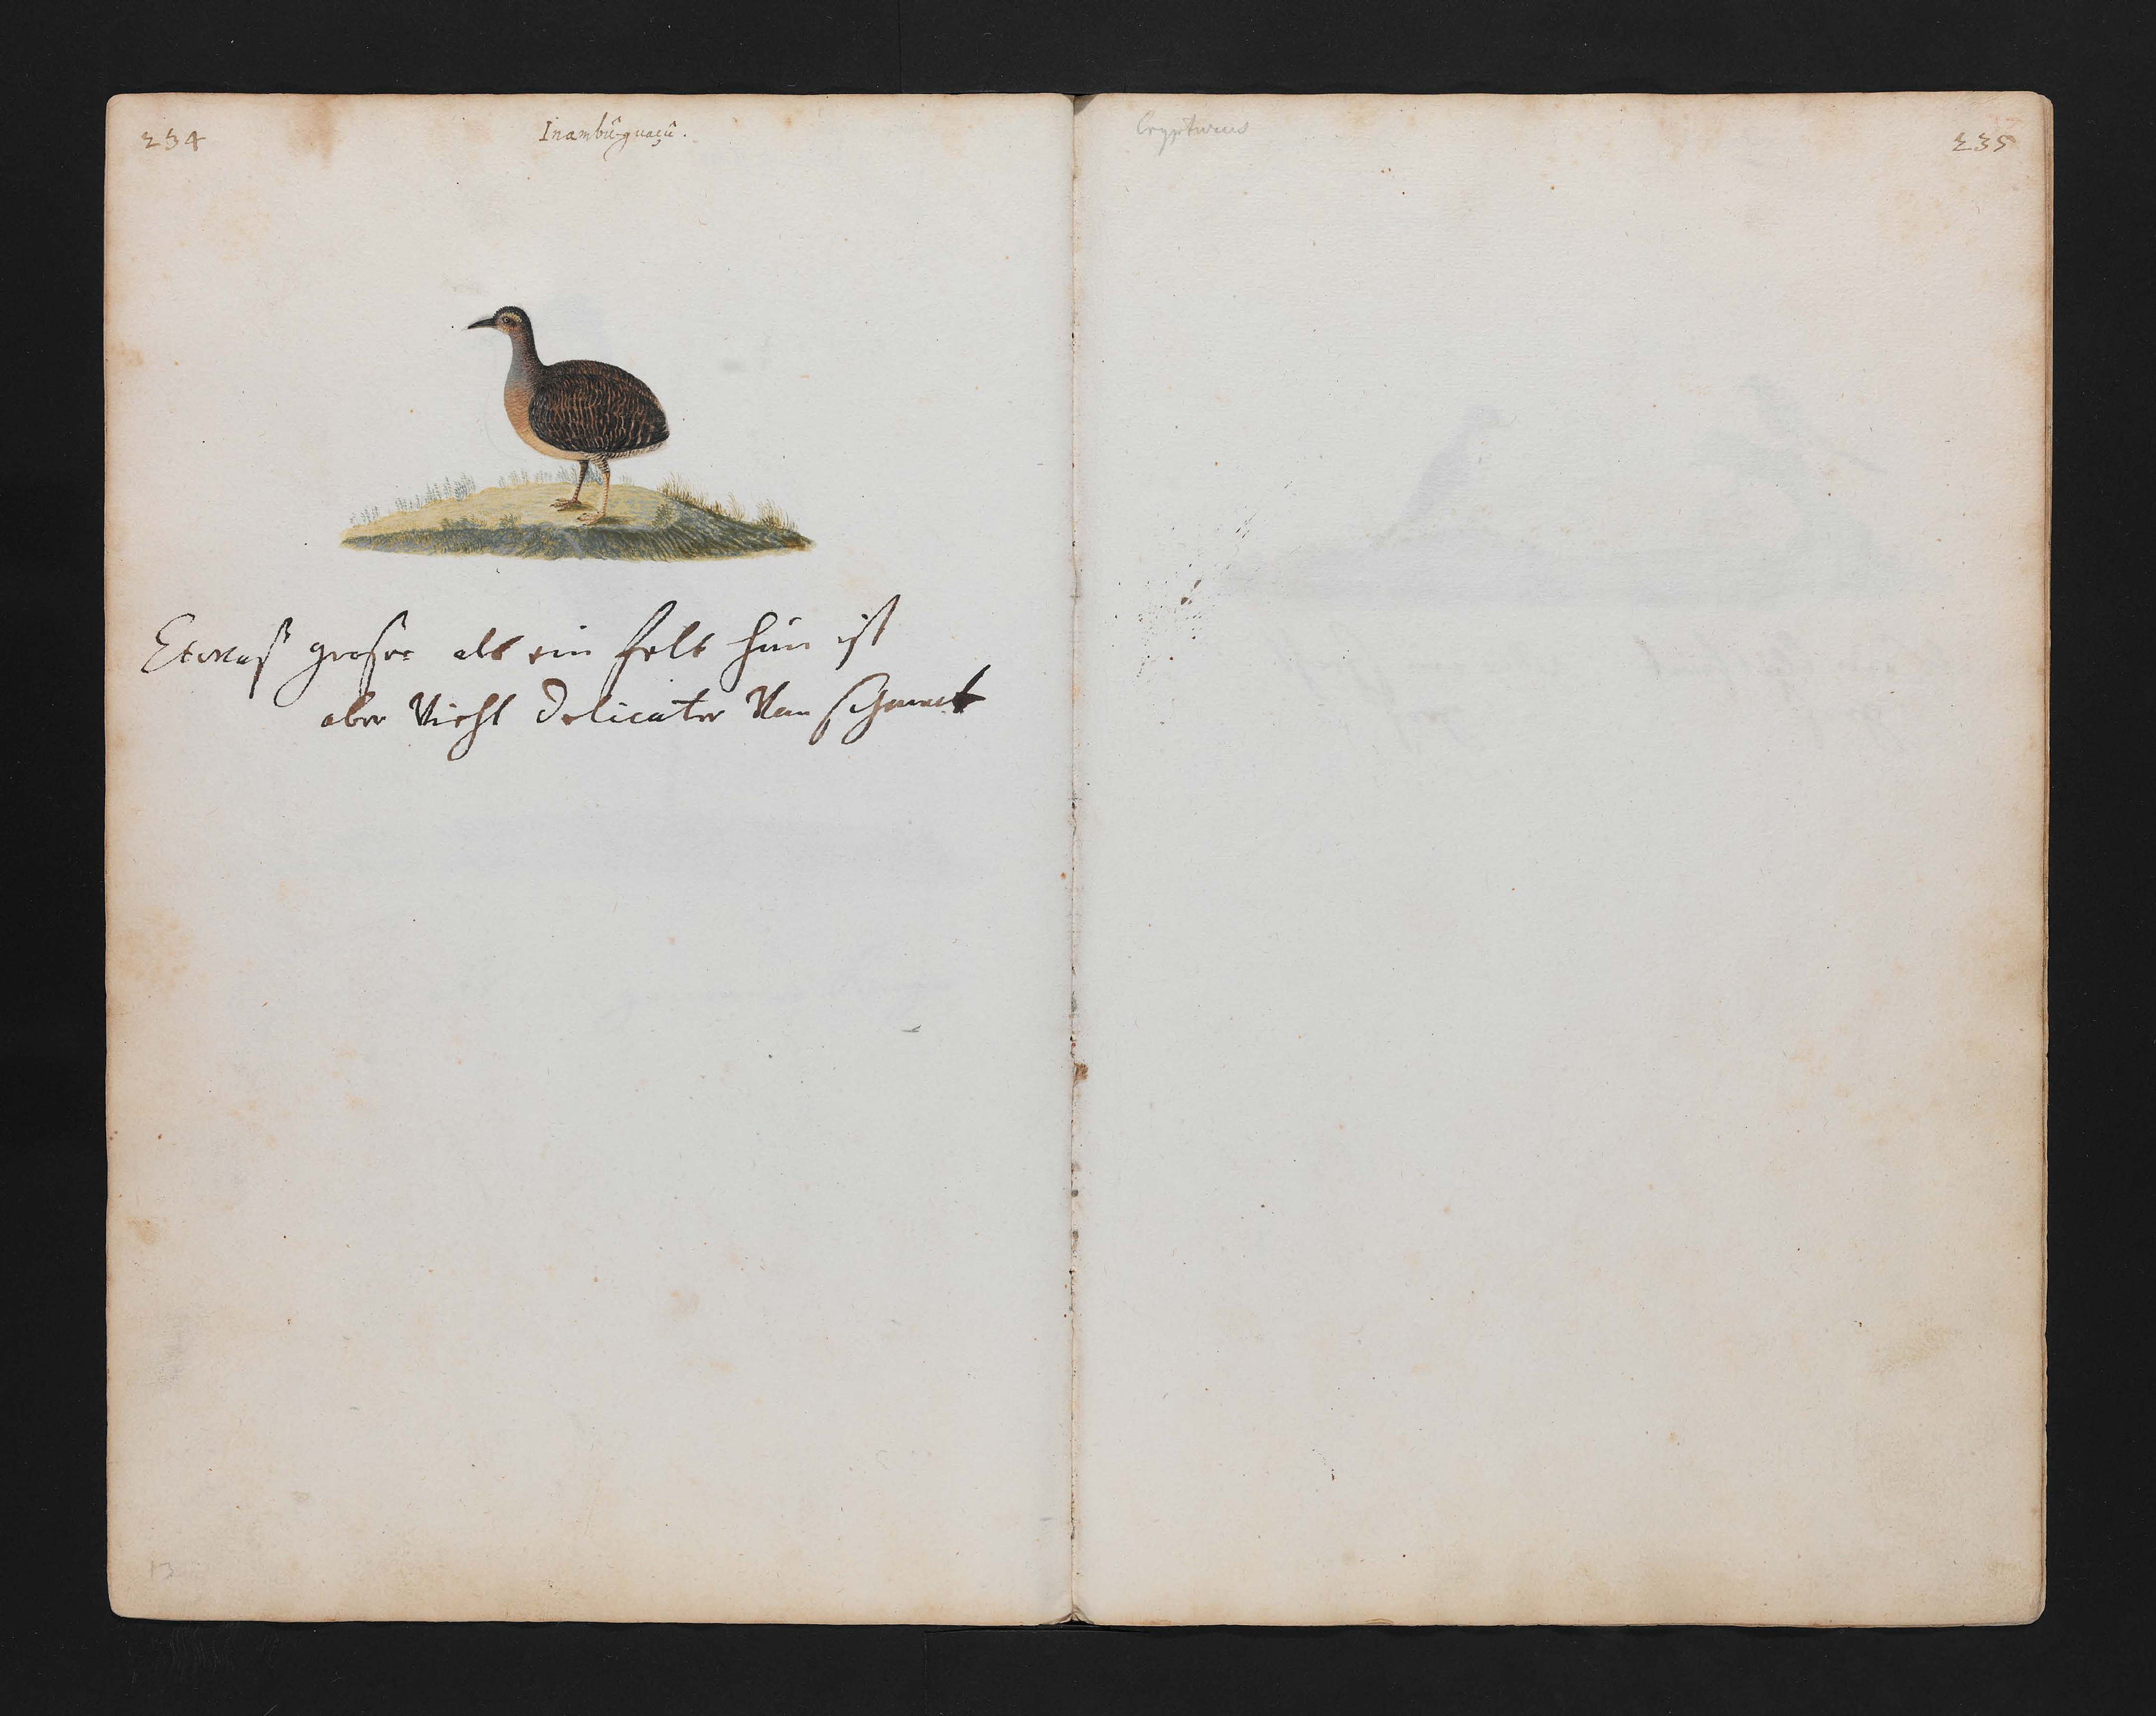 234
Inambû-guaçû.
Etwaß grosser als ein felt hun ist
aber Nicht delicater Van schmack
Crypturus
235